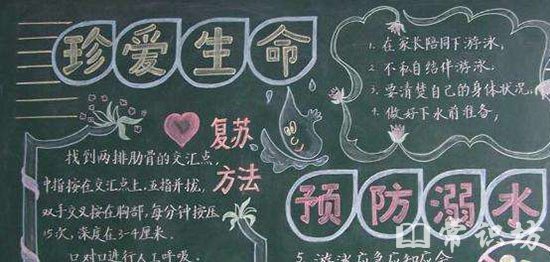 珍爱生命
1. 在家长陪同下游泳.
2. 不私自结伴游泳.
3. 要清楚自己的身体状况.
4. 做好下水前准备,
复苏
方法
找到两排肋骨的交汇点,
中指按在交汇点上,五指并拢,
双手交叉按在胸部,每分钟按压
15次,深度在3-4厘米.
口对口进行人工呼吸.
预防溺水
5. 游泳应急应知应会
常识坊